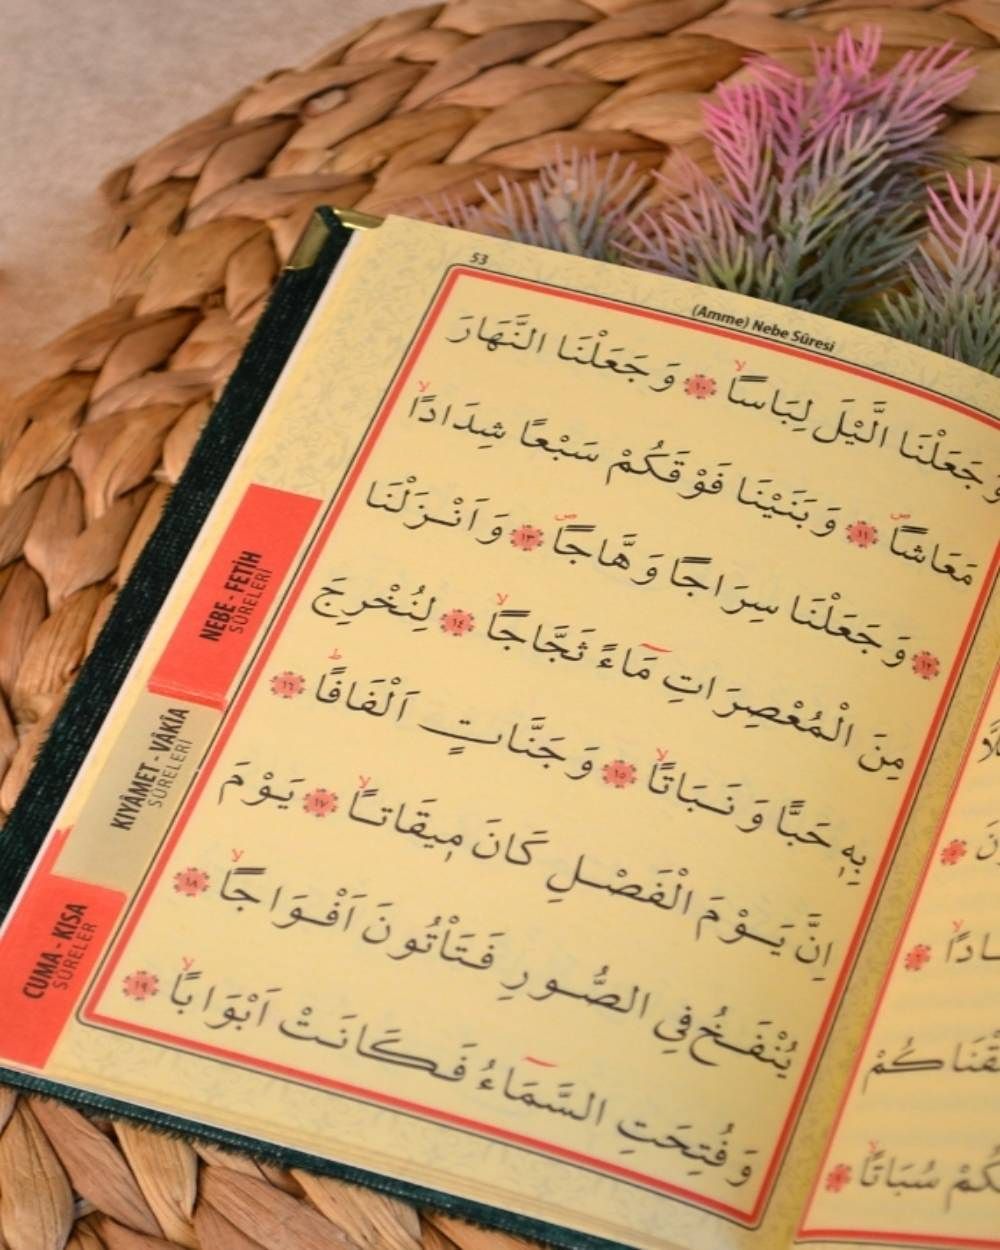 53
(Amme) Nebe Sûresi
وَجَعَلْنَا الَّيْلَ لِبَاسًاۙ ﴿١٠﴾ وَجَعَلْنَا النَّهَارَ
مَعَاشًاۖ ﴿١١﴾ وَبَنَيْنَا فَوْقَكُمْ سَبْعًا شِدَادًاۙ
﴿١٢﴾ وَجَعَلْنَا سِرَاجًا وَهَّاجًاۖ ﴿١٣﴾ وَاَنْزَلْنَا
مِنَ الْمُعْصِرَاتِ مَٓاءً ثَجَّاجًاۙ ﴿١٤﴾ لِنُخْرِجَ
بِهٖ حَبًّا وَنَبَاتًاۙ ﴿١٥﴾ وَجَنَّاتٍ اَلْفَافًاۜ ﴿١٦﴾
اِنَّ يَوْمَ الْفَصْلِ كَانَ مٖيقَاتًاۙ ﴿١٧﴾ يَوْمَ
يُنْفَخُ فِي الصُّورِ فَتَأْتُونَ اَفْوَاجًاۙ ﴿١٨﴾
وَفُتِحَتِ السَّمَٓاءُ فَكَانَتْ اَبْوَابًاۙ ﴿١٩﴾
NEBE - FETİH
SÛRELERİ
KIYÂMET - VÂKIA
SÛRELERİ
CUMA - KISA
SÛRELER
كُمْ سُبَاتًاۙ